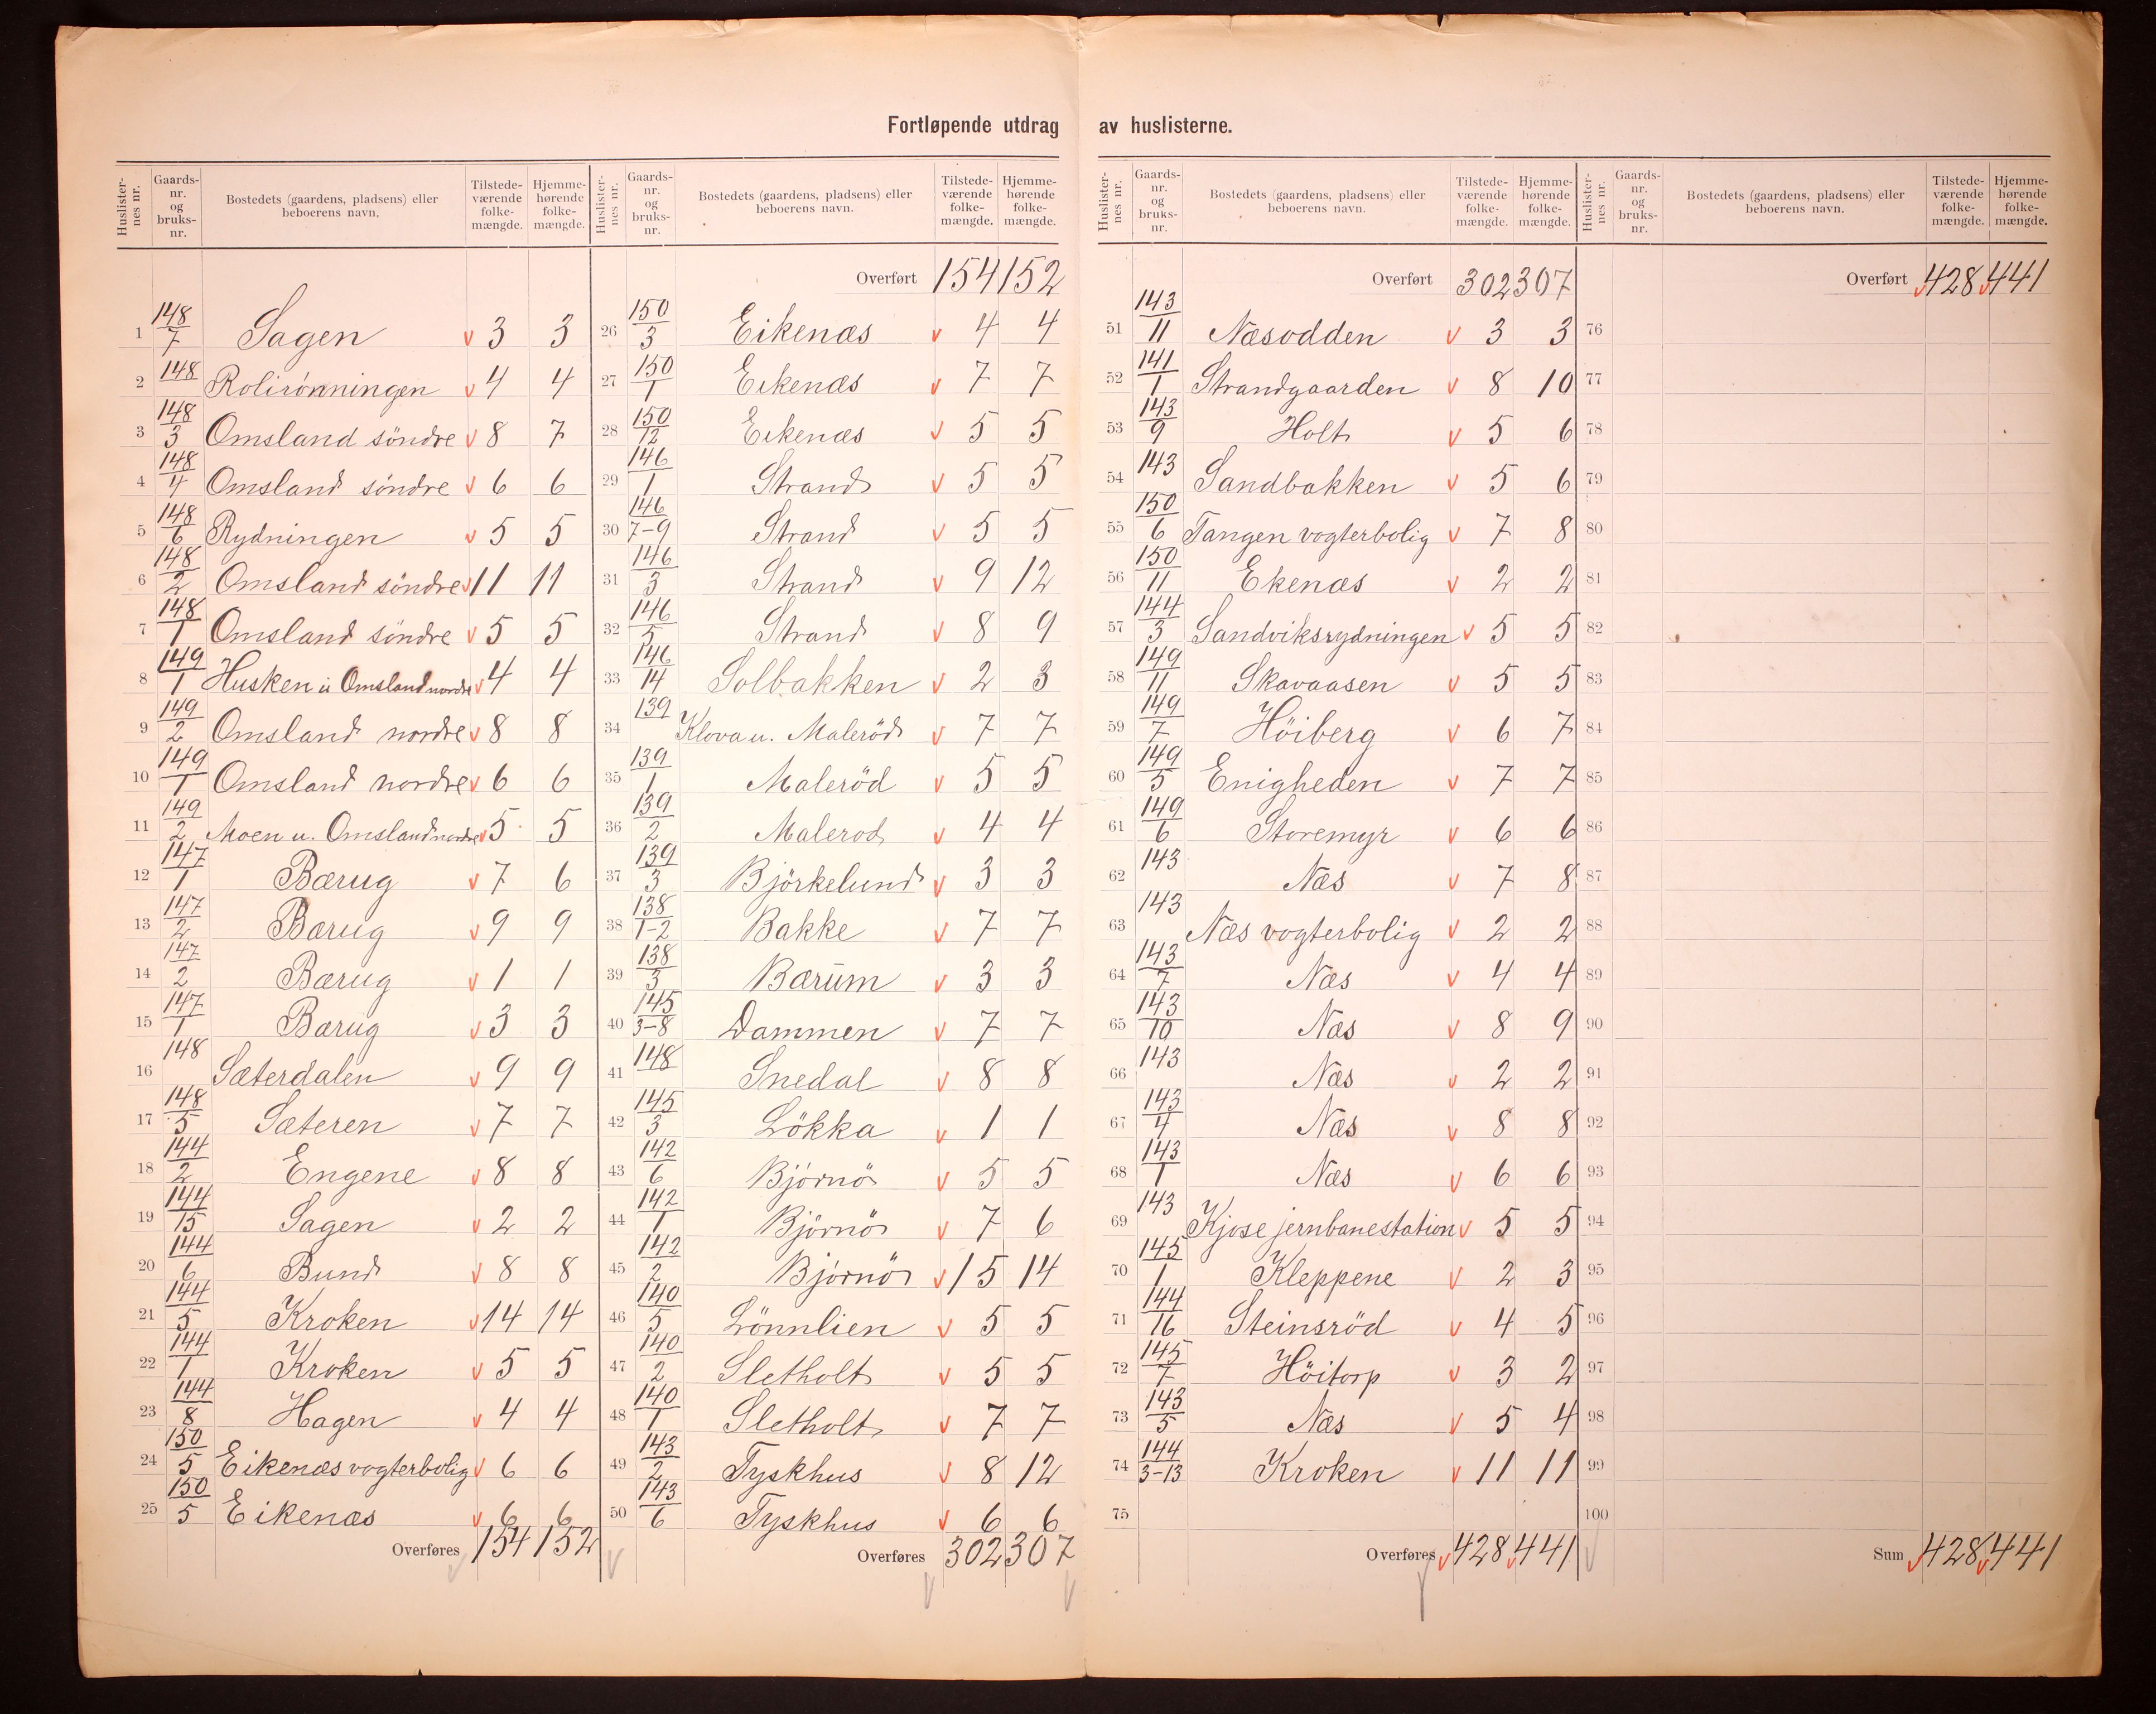 Fortløpende utdrag av huslisterne.
Huslister-nes nr. | Gaards-nr. og bruks-nr. | Bostedets (gaardens, pladsens) eller beboerens navn. | Tilstede-værende folke-mængde. | Hjemme-hørende folke-mængde.
1 148/7 Sagen 3 3
2 148 Rolirönningen 4 4
3 148/3 Omsland söndre 8 7
4 148/4 Omsland söndre 6 6
5 148/6 Rydningen 5 5
6 148/2 Omsland söndre 11 11
7 148/1 Omsland söndre 5 5
8 149/1 Husken u Omsland nordre 4 4
9 149/2 Omsland nordre 8 8
10 149/1 Omsland nordre 6 6
11 149/2 Moen u. Omsland nordre 5 5
12 147/1 Bærug 7 6
13 147/2 Bærug 9 9
14 147/2 Bærug 1 1
15 147/1 Bærug 3 3
16 148 Sæterdalen 9 9
17 148/5 Sæteren 7 7
18 144/2 Engene 8 8
19 144/15 Sagen 2 2
20 144/6 Bund 8 8
21 144/5 Kroken 14 14
22 144/1 Kroken 5 5
23 144/8 Hagen 4 4
24 150/5 Eikenæs vogterbolig 6 6
25 150/5 Eikenæs 6 6
Overføres 154 152
Huslister-nes nr. | Gaards-nr. og bruks-nr. | Bostedets (gaardens, pladsens) eller beboerens navn. | Tilstede-værende folke-mængde. | Hjemme-hørende folke-mængde.
Overført 154 152
26 150/3 Eikenæs 4 4
27 150/1 Eikenæs 7 7
28 150/12 Eikenæs 5 5
29 146/1 Strand 5 5
30 146/7-9 Strand 5 5
31 146/3 Strand 9 12
32 146/5 Strand 8 9
33 146/14 Solbakken 2 3
34 139 Klova u. Maleröd 7 7
35 139/1 Maleröd 5 5
36 139/2 Malerod 4 4
37 139/3 Björkelund 3 3
38 138/1-2 Bakke 7 7
39 138/3 Bærum 3 3
40 145/3-8 Dammen 7 7
41 148 Snedal 8 8
42 145/3 Lökka 1 1
43 142/6 Björnö 5 5
44 142/1 Björnö 7 6
45 142/2 Björnö 15 14
46 140/5 Lönnlien 5 5
47 140/2 Sletholt 5 5
48 140/1 Sletholt 7 7
49 143/2 Tyskhus 8 12
50 143/6 Tyskhus 6 6
Overføres 302 307
Huslister-nes nr. | Gaards-nr. og bruks-nr. | Bostedets (gaardens, pladsens) eller beboerens navn. | Tilstede-værende folke-mængde. | Hjemme-hørende folke-mængde.
Overført 302 307
51 143/11 Næsodden 3 3
52 141/1 Strandgaarden 8 10
53 143/9 Holt 5 6
54 143 Sandbakken 5 6
55 150/6 Tangen vogterbolig 7 8
56 150/11 Ekenæs 2 2
57 144/3 Sandviksrydningen 5 5
58 149/11 Skavaasen 5 5
59 149/7 Höiberg 6 7
60 149/5 Enigheden 7 7
61 149/6 Storemyr 6 6
62 143 Næs 7 8
63 143 Næs vogterbolig 2 2
64 143/7 Næs 4 4
65 143/10 Næs 8 9
66 143 Næs 2 2
67 143/4 Næs 8 8
68 143/1 Næs 6 6
69 143 Kjose jernbanestation 5 5
70 145/1 Kleppene 2 3
71 144/16 Steinsröd 4 5
72 145/7 Höitorp 3 2
73 143/5 Næs 5 4
74 144/3-13 Kroken 11 11
75
Overføres 428 441
Huslister-nes nr. | Gaards-nr. og bruks-nr. | Bostedets (gaardens, pladsens) eller beboerens navn. | Tilstede-værende folke-mængde. | Hjemme-hørende folke-mængde.
Overført 428 441
76
77
78
79
80
81
82
83
84
85
86
87
88
89
90
91
92
93
94
95
96
97
98
99
100
Sum 428 441